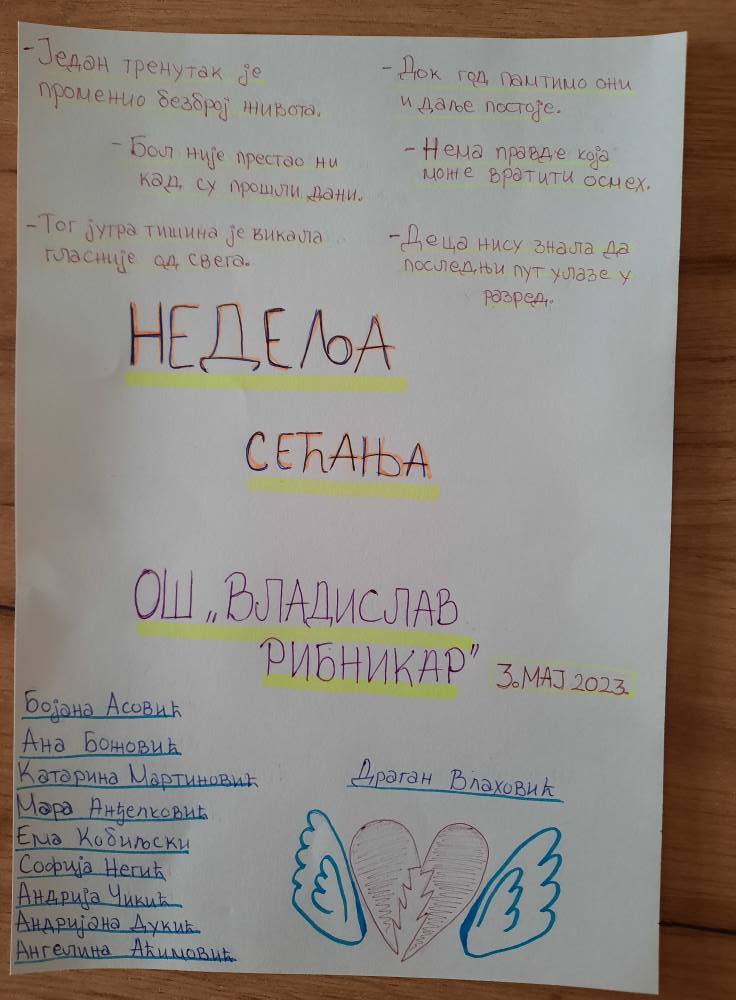 - Један тренутак је
променио безброј живота.
- Бол није престао ни
кад су прошли дани.
- Тог јутра тишина је викала
гласније од свега.
- Док год памтимо они
и даље постоје.
- Нема правде која
може вратити осмех.
- Деца нису знала да
последњи пут улазе у
разред.
НЕДЕЉА
СЕЋАЊА
ОШ „ВЛАДИСЛАВ
РИБНИКАР”
3. МАЈ 2023.
Бојана Асовић
Ана Божовић
Катарина Мартиновић
Мара Анђелковић
Ема Кобиљски
Софија Негић
Андрија Чикић
Андријана Дукић
Ангелина Аћимовић
Драган Влаховић